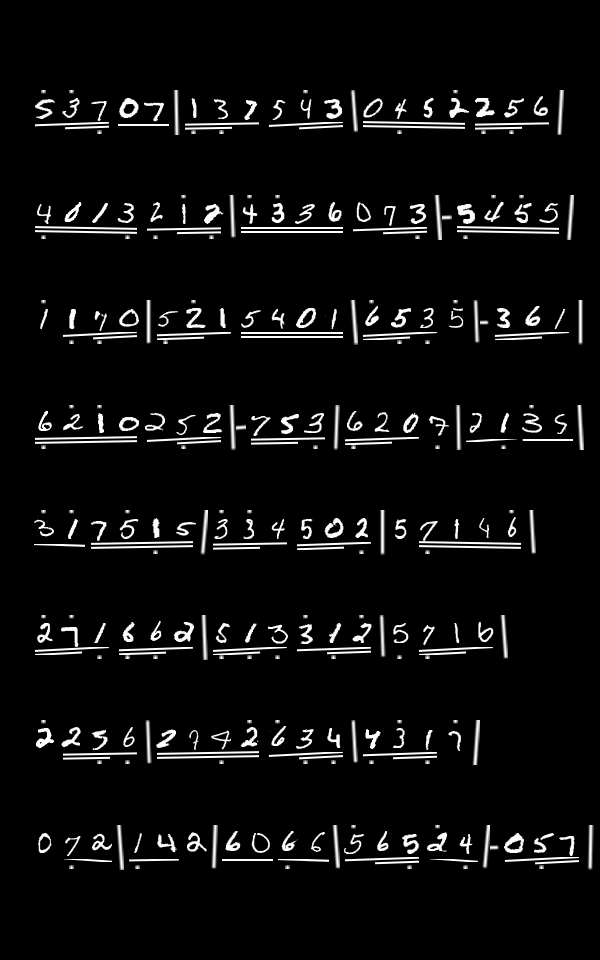 53707|137543|0452256
4013212|4336073|-5455
1170|5215401|6535|-361
6210252|-753|6207|2135
3175175|334502|57146
271662|513312|5716
2256|2742634|4317
072|142|6066|56524|-057